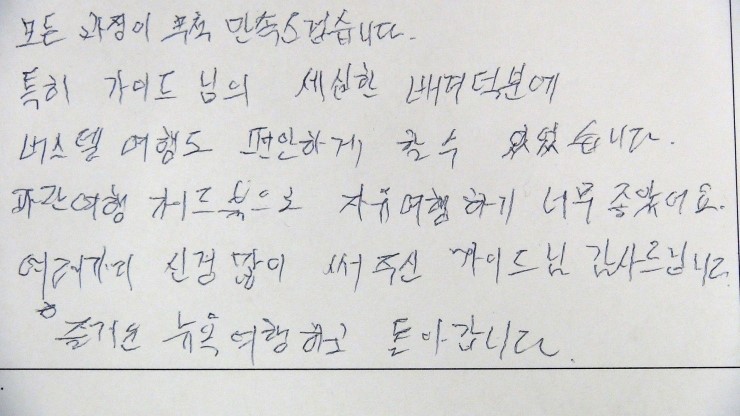 모든 과정이 무척 만족스럽습니다.
특히 가이드님의 세심한 배려덕분에
버스텔 여행도 편안하게 할 수 있었습니다.
파란여행 가이드북으로 자유여행하기 너무 좋았어요.
여러가지 신경 많이 써 주신 가이드님 감사드립니다.
즐거운 뉴욕여행하고 돌아갑니다.